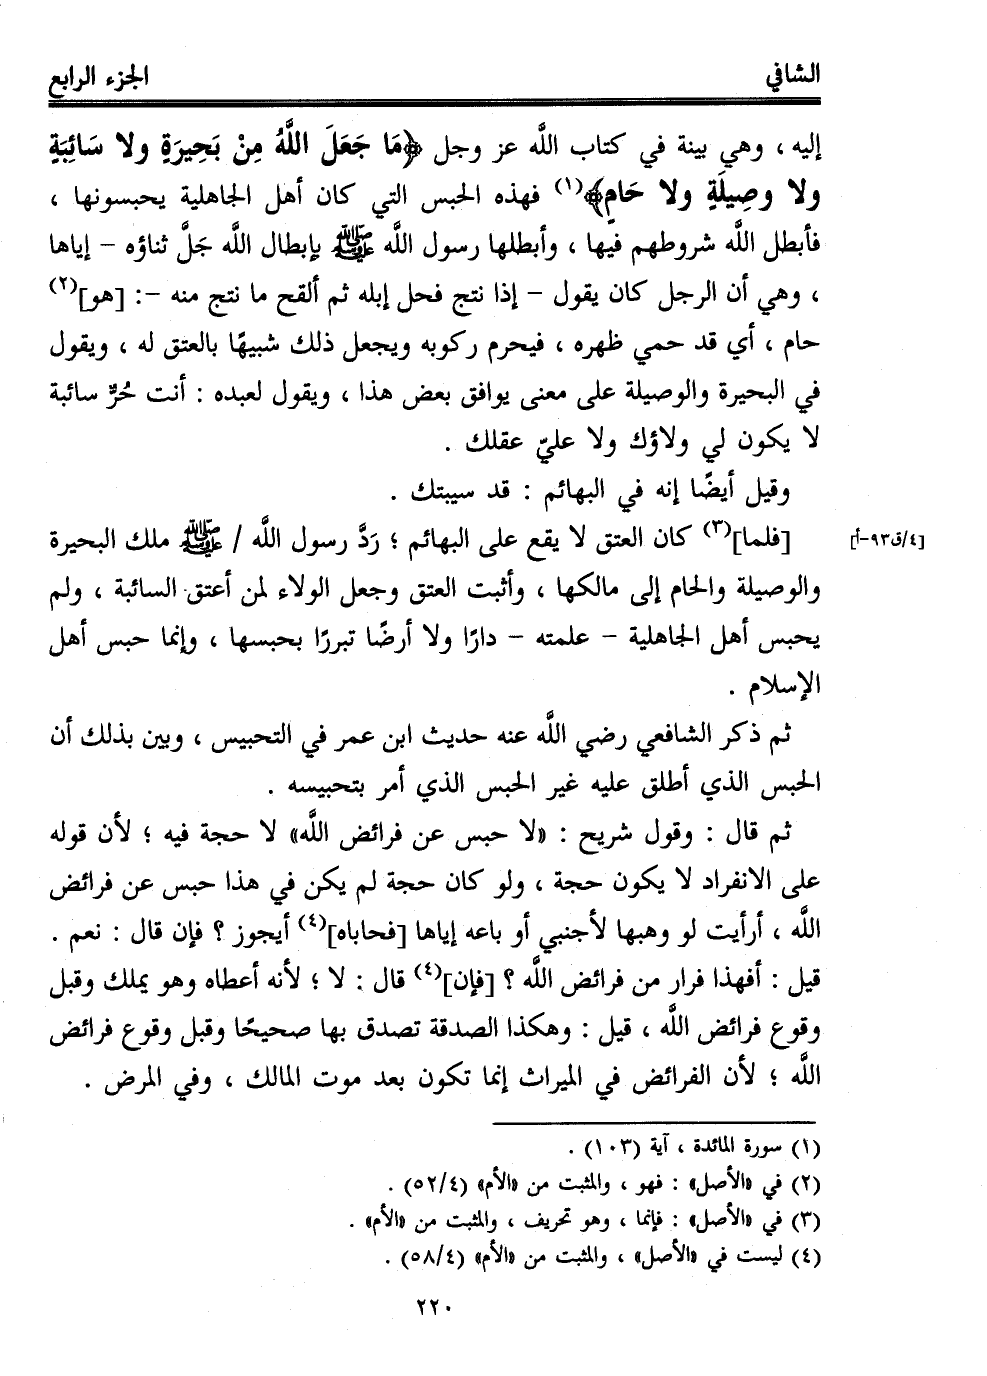 الشافي
الجزء الرابع
إليه ، وهي بينة في كتاب اللَّه عز وجل ﴿مَا جَعَلَ اللَّهُ مِنْ بَحِيرَةٍ ولا سَائِبَةٍ
ولا وصِيلَةٍ ولا حَامٍ﴾(١) فهذه الحبس التي كان أهل الجاهلية يحبسونها ،
فأبطل اللَّه شروطهم فيها ، وأبطلها رسول اللَّه ﷺ بإبطال اللَّه جَلَّ ثناؤه – إياها
، وهي أن الرجل كان يقول – إذا نتج فحل إبله ثم ألقح ما نتج منه –: [هو](٢)
حام ، أي قد حمي ظهره ، فيحرم ركوبه ويجعل ذلك شبيهًا بالعتق له ، ويقول
في البحيرة والوصيلة على معنى يوافق بعض هذا ، ويقول لعبده : أنت حُرٌّ سائبة
لا يكون لي ولاؤك ولا عليّ عقلك .
وقيل أيضًا إنه في البهائم : قد سيبتك .
[فلما](٣) كان العتق لا يقع على البهائم ؛ رَدَّ رسول اللَّه / ﷺ ملك البحيرة
[٤/ق٩٣-أ]
والوصيلة والحام إلى مالكها ، وأثبت العتق وجعل الولاء لمن أعتق السائبة ، ولم
يحبس أهل الجاهلية – علمته – دارًا ولا أرضًا تبررًا بحبسها ، وإنما حبس أهل
الإسلام .
ثم ذكر الشافعي رضي اللَّه عنه حديث ابن عمر في التحبيس ، وبين بذلك أن
الحبس الذي أطلق عليه غير الحبس الذي أمر بتحبيسه .
ثم قال : وقول شريح : «لا حبس عن فرائض اللَّه» لا حجة فيه ؛ لأن قوله
على الانفراد لا يكون حجة ، ولو كان حجة لم يكن في هذا حبس عن فرائض
اللَّه ، أرأيت لو وهبها لأجنبي أو باعه إياها [فحاباه](٤) أيجوز ؟ فإن قال : نعم .
قيل : أفهذا فرار من فرائض اللَّه ؟ [فإن](٤) قال : لا ؛ لأنه أعطاه وهو يملك وقبل
وقوع فرائض اللَّه ، قيل : وهكذا الصدقة تصدق بها صحيحًا وقبل وقوع فرائض
اللَّه ؛ لأن الفرائض في الميراث إنما تكون بعد موت المالك ، وفي المرض .
(١) سورة المائدة ، آية (١٠٣) .
(٢) في «الأصل» : فهو ، والمثبت من «الأم» (٥٢/٤) .
(٣) في «الأصل» : فإنما ، وهو تحريف ، والمثبت من «الأم» .
(٤) ليست في «الأصل» ، والمثبت من «الأم» (٥٨/٤) .
٢٢٠